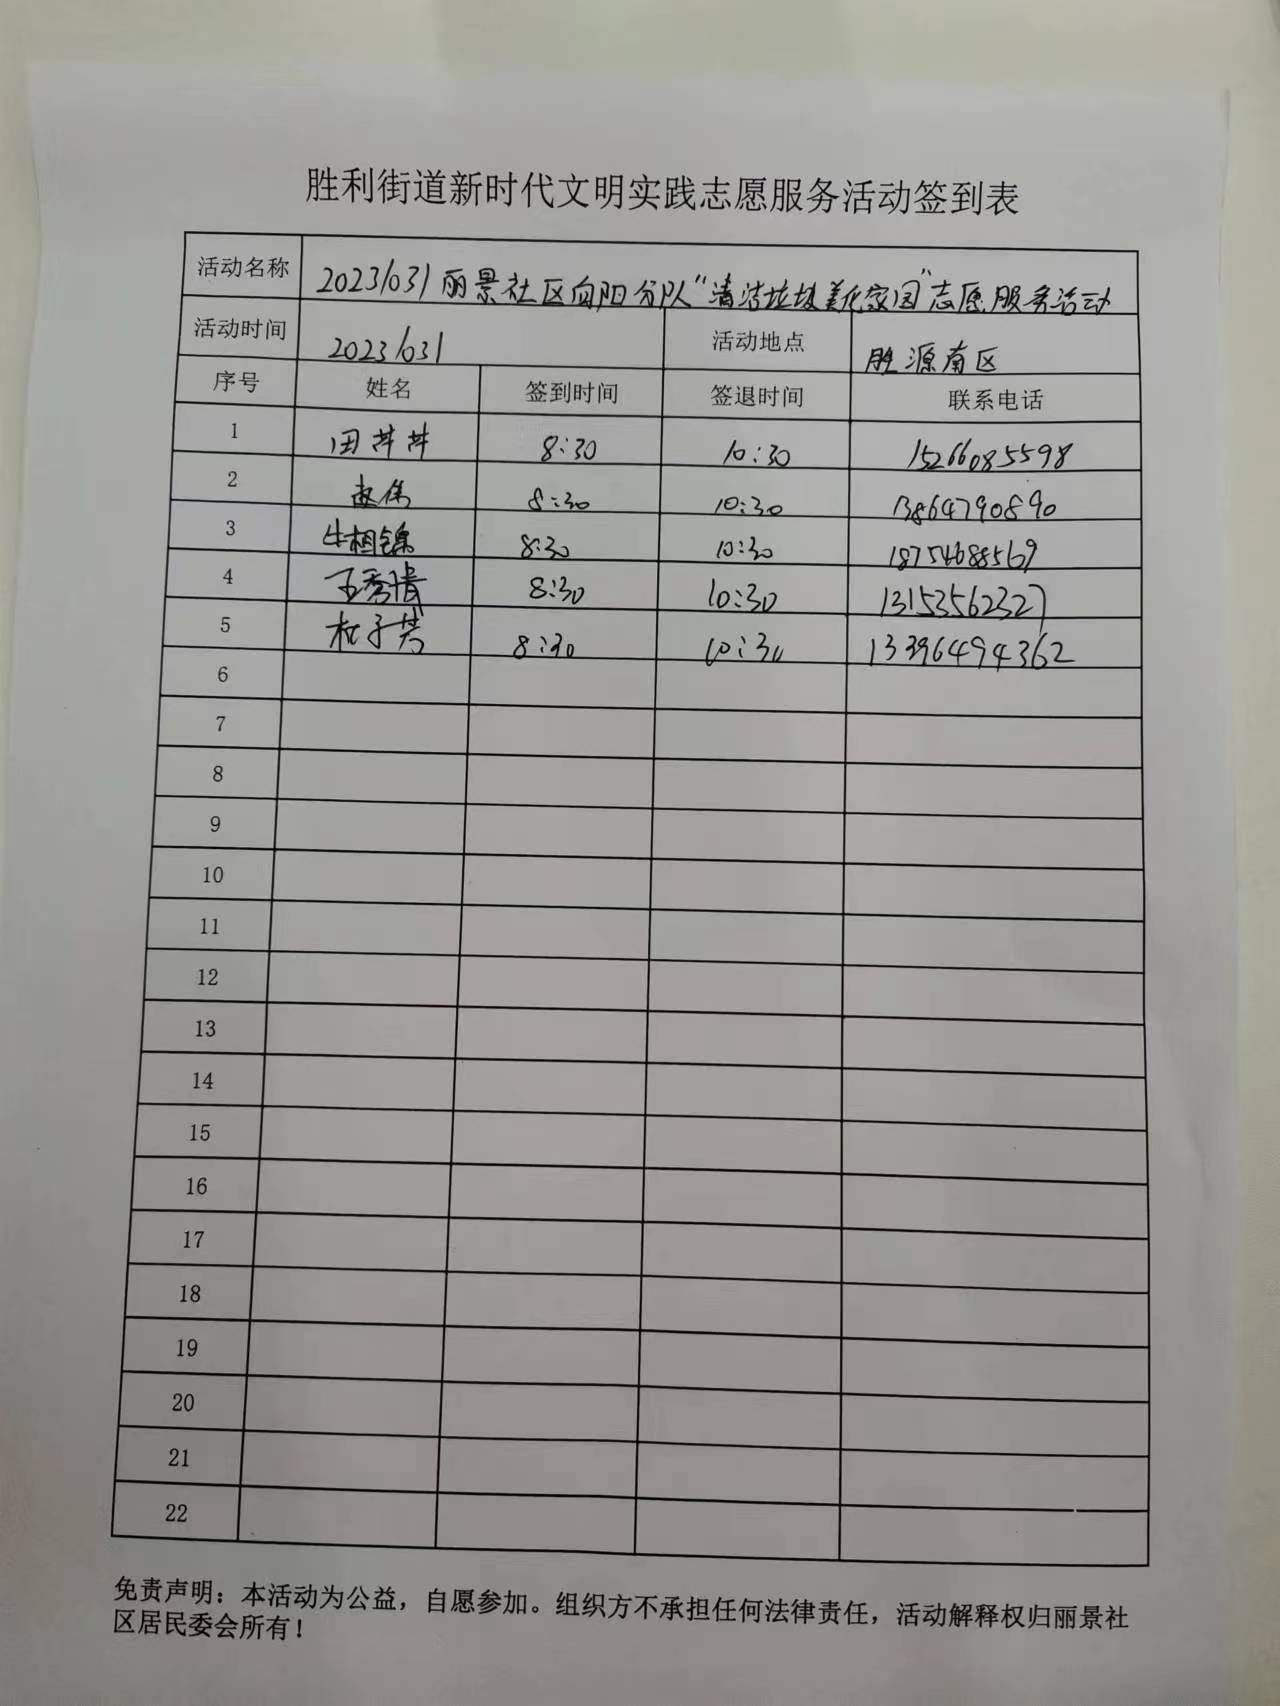 胜利街道新时代文明实践志愿服务活动签到表
活动名称 20231031丽景社区向阳分队“清洁垃圾美化家园”志愿服务活动
活动时间 20231031 活动地点 胜源南区
序号 姓名 签到时间 签退时间 联系电话
1 田芊芊 8:30 10:30 15266085598
2 赵伟 8:30 10:30 13864790890
3 牛相锦 8:30 10:30 18754688569
4 王秀倩 8:30 10:30 13153562327
5 杜子芳 8:30 10:30 13396494362
6
7
8
9
10
11
12
13
14
15
16
17
18
19
20
21
22
免责声明：本活动为公益，自愿参加。组织方不承担任何法律责任，活动解释权归丽景社
区居民委会所有！